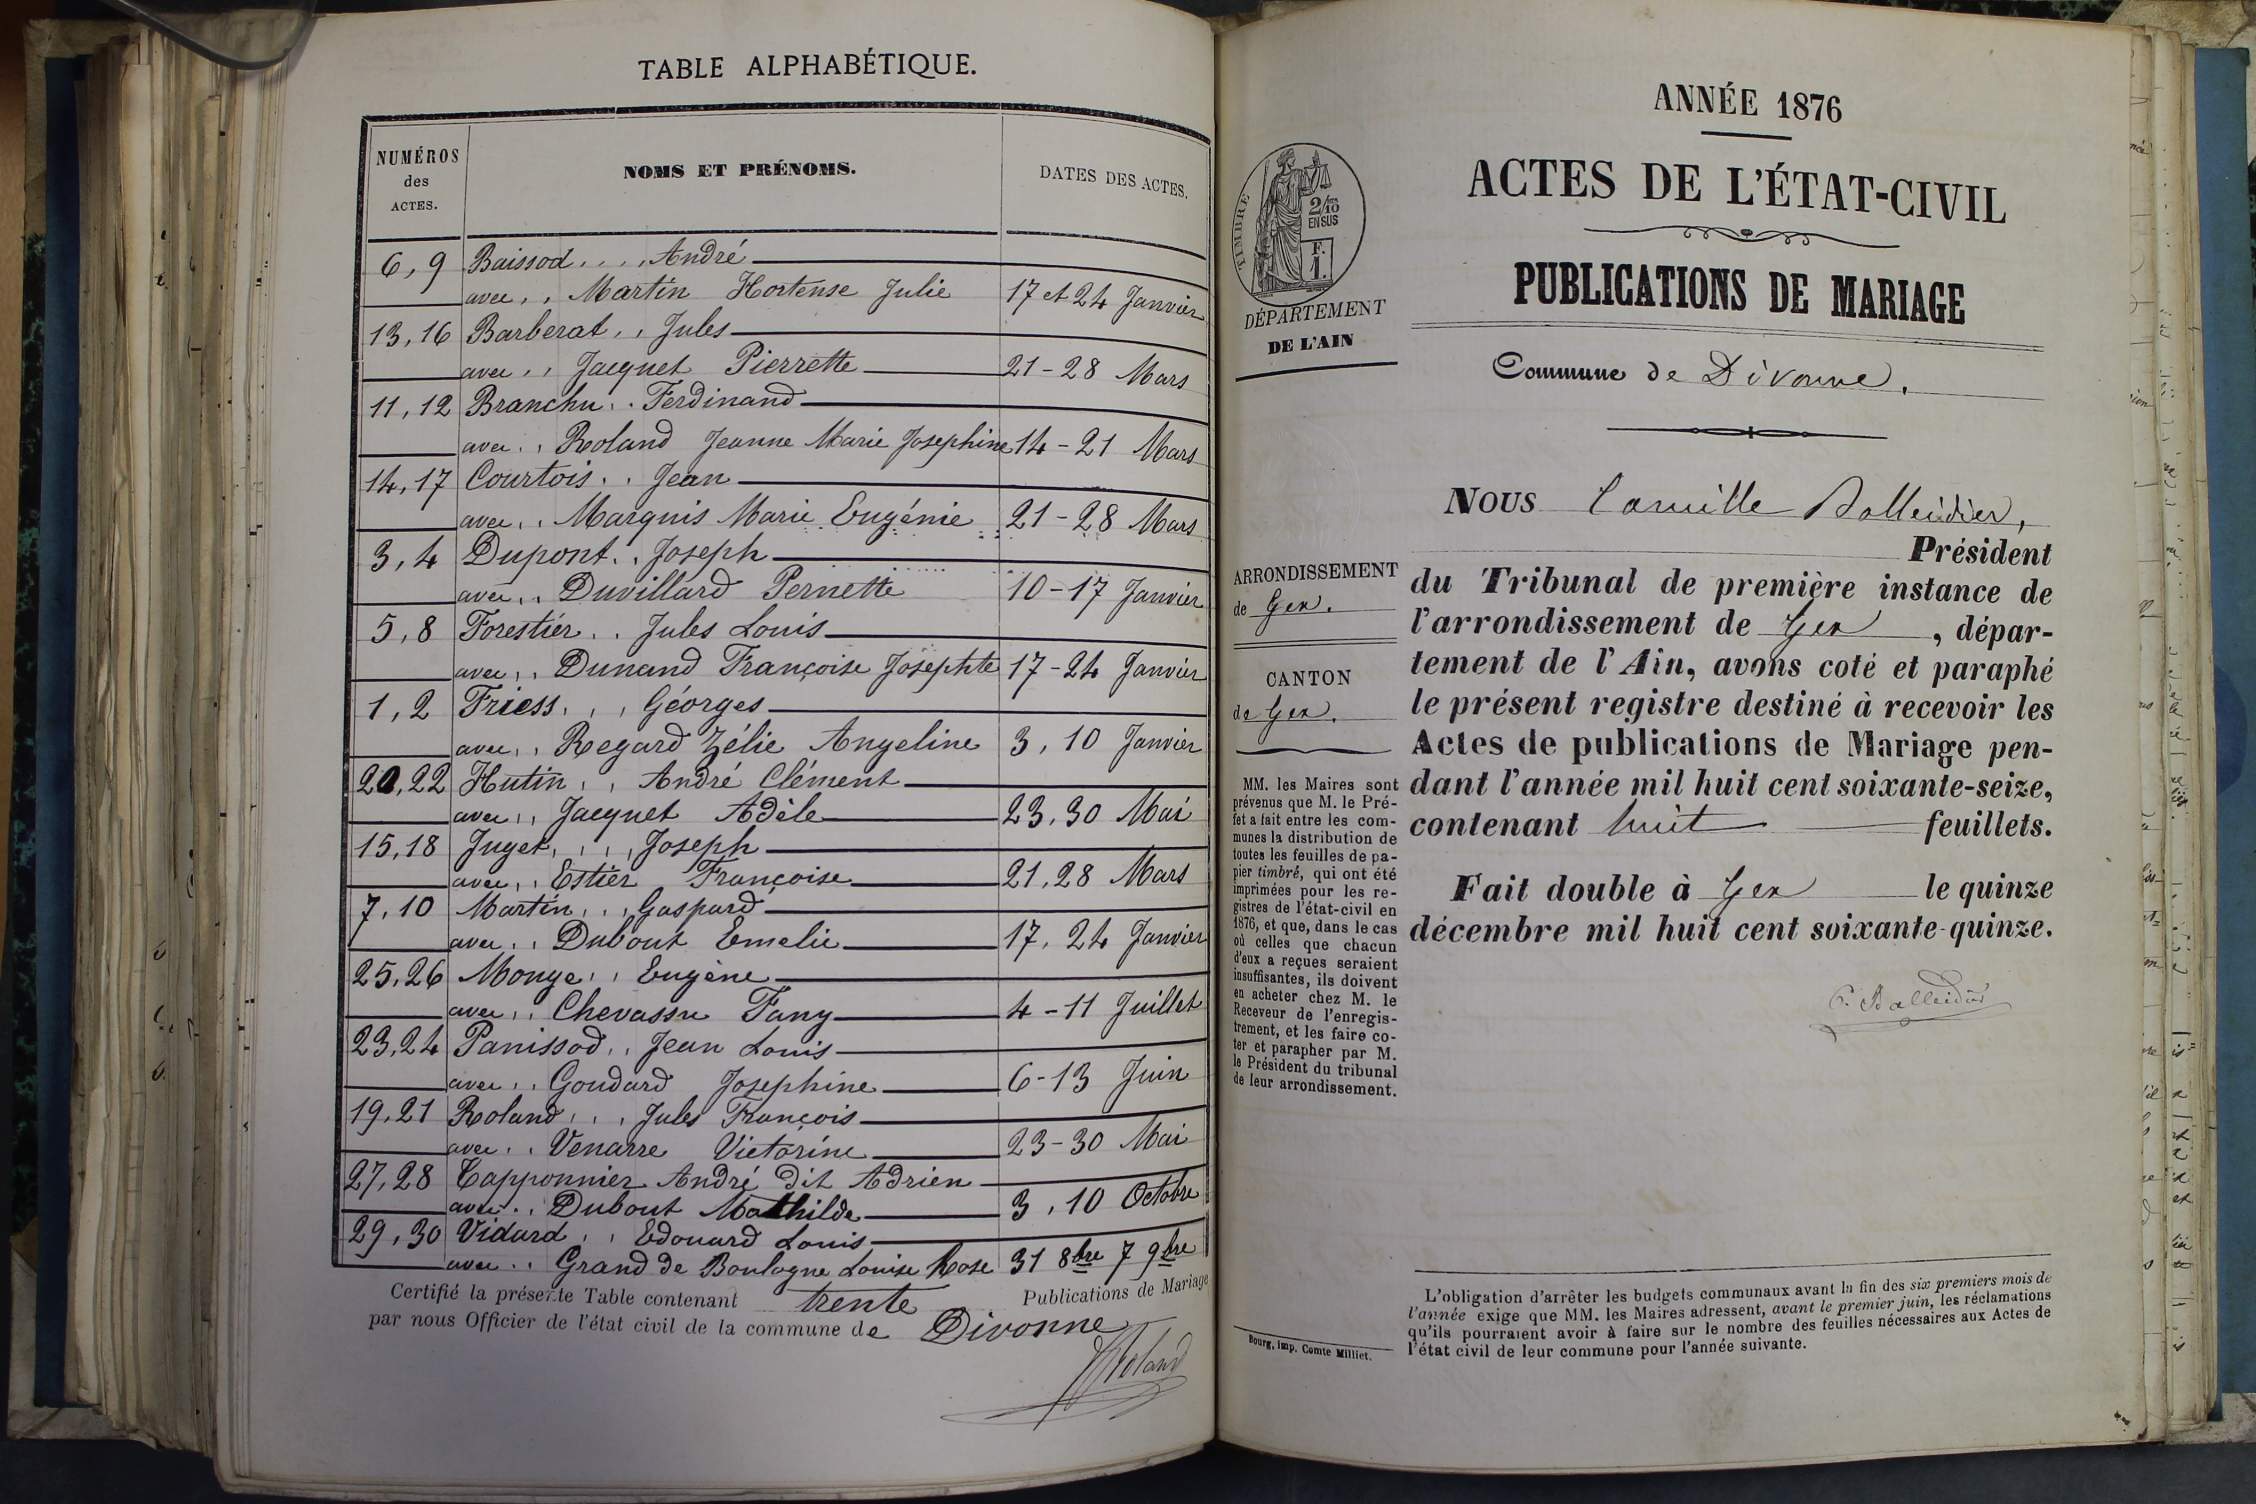 TABLE ALPHABÉTIQUE.
NUMÉROS
des
ACTES.
NOMS ET PRÉNOMS.
DATES DES ACTES.
6, 9 Baissod . . . . André
avec . . Martin Hortense Julie 17 et 24 Janvier
13, 16 Barberat . . Jules
avec . . Jacquet Pierrette 21 - 28 Mars
11, 12 Branchu . . Ferdinand
avec . . Roland Jeanne Marie Josephine 14 - 21 Mars
14, 17 Courtois . . Jean
avec . . Marquis Marie Eugénie 21 - 28 Mars
3, 4 Dupont . . Joseph
avec . . Duvillard Pernette 10 - 17 Janvier
5, 8 Forestier . . Jules Louis
avec . . Dunand Françoise Josephte 17 - 24 Janvier
1, 2 Friess . . . Géorges
avec . . Regard Zélie Angeline 3, 10 Janvier
20, 22 Hutin . . André Clément
avec . . Jacquet Adèle 23, 30 Mai
15, 18 Juget . . . . Joseph
avec . . Estier Françoise 21, 28 Mars
7, 10 Martin . . . Gaspard
avec . . Dubout Emelie 17, 24 Janvier
25, 26 Monge . . Eugène
avec . . Chevassu Fany 4 - 11 Juillet
23, 24 Panissod . . Jean Louis
avec . . Goudard Josephine 6 - 13 Juin
19, 21 Roland . . . Jules François
avec . . Venarre Victorine 23 - 30 Mai
27, 28 Tapponnier André dit Adrien
avec . . Dubout Mathilde 3, 10 Octobre
29, 30 Vidard . . Edouard Louis
avec . . Grand de Boulogne Louise Rose 31 8bre 7 9bre
Certifié la présente Table contenant trente Publications de Mariage
par nous Officier de l'état civil de la commune de Divonne
Roland
ANNÉE 1876
ACTES DE L'ÉTAT-CIVIL
PUBLICATIONS DE MARIAGE
TIMBRE
2/10
EN SUS
F.
1.
DÉPARTEMENT
DE L'AIN
Commune de Divonne.
Nous Camille Balleidier,
Président
du Tribunal de première instance de
l'arrondissement de Gex, dépar-
tement de l'Ain, avons coté et paraphé
le présent registre destiné à recevoir les
Actes de publications de Mariage pen-
dant l'année mil huit cent soixante-seize,
contenant huit feuillets.
Fait double à Gex le quinze
décembre mil huit cent soixante-quinze.
C. Balleidier
ARRONDISSEMENT
de Gex.
CANTON
de Gex.
MM. les Maires sont
prévenus que M. le Pré-
fet a fait entre les com-
munes la distribution de
toutes les feuilles de pa-
pier timbré, qui ont été
imprimées pour les re-
gistres de l'état-civil en
1876, et que, dans le cas
où celles que chacun
d'eux a reçues seraient
insuffisantes, ils doivent
en acheter chez M. le
Receveur de l'enregis-
trement, et les faire co-
ter et parapher par M.
le Président du tribunal
de leur arrondissement.
L'obligation d'arrêter les budgets communaux avant la fin des six premiers mois de
l'année exige que MM. les Maires adressent, avant le premier juin, les réclamations
qu'ils pourraient avoir à faire sur le nombre des feuilles nécessaires aux Actes de
l'état civil de leur commune pour l'année suivante.
Bourg, imp. Comte Milliet.